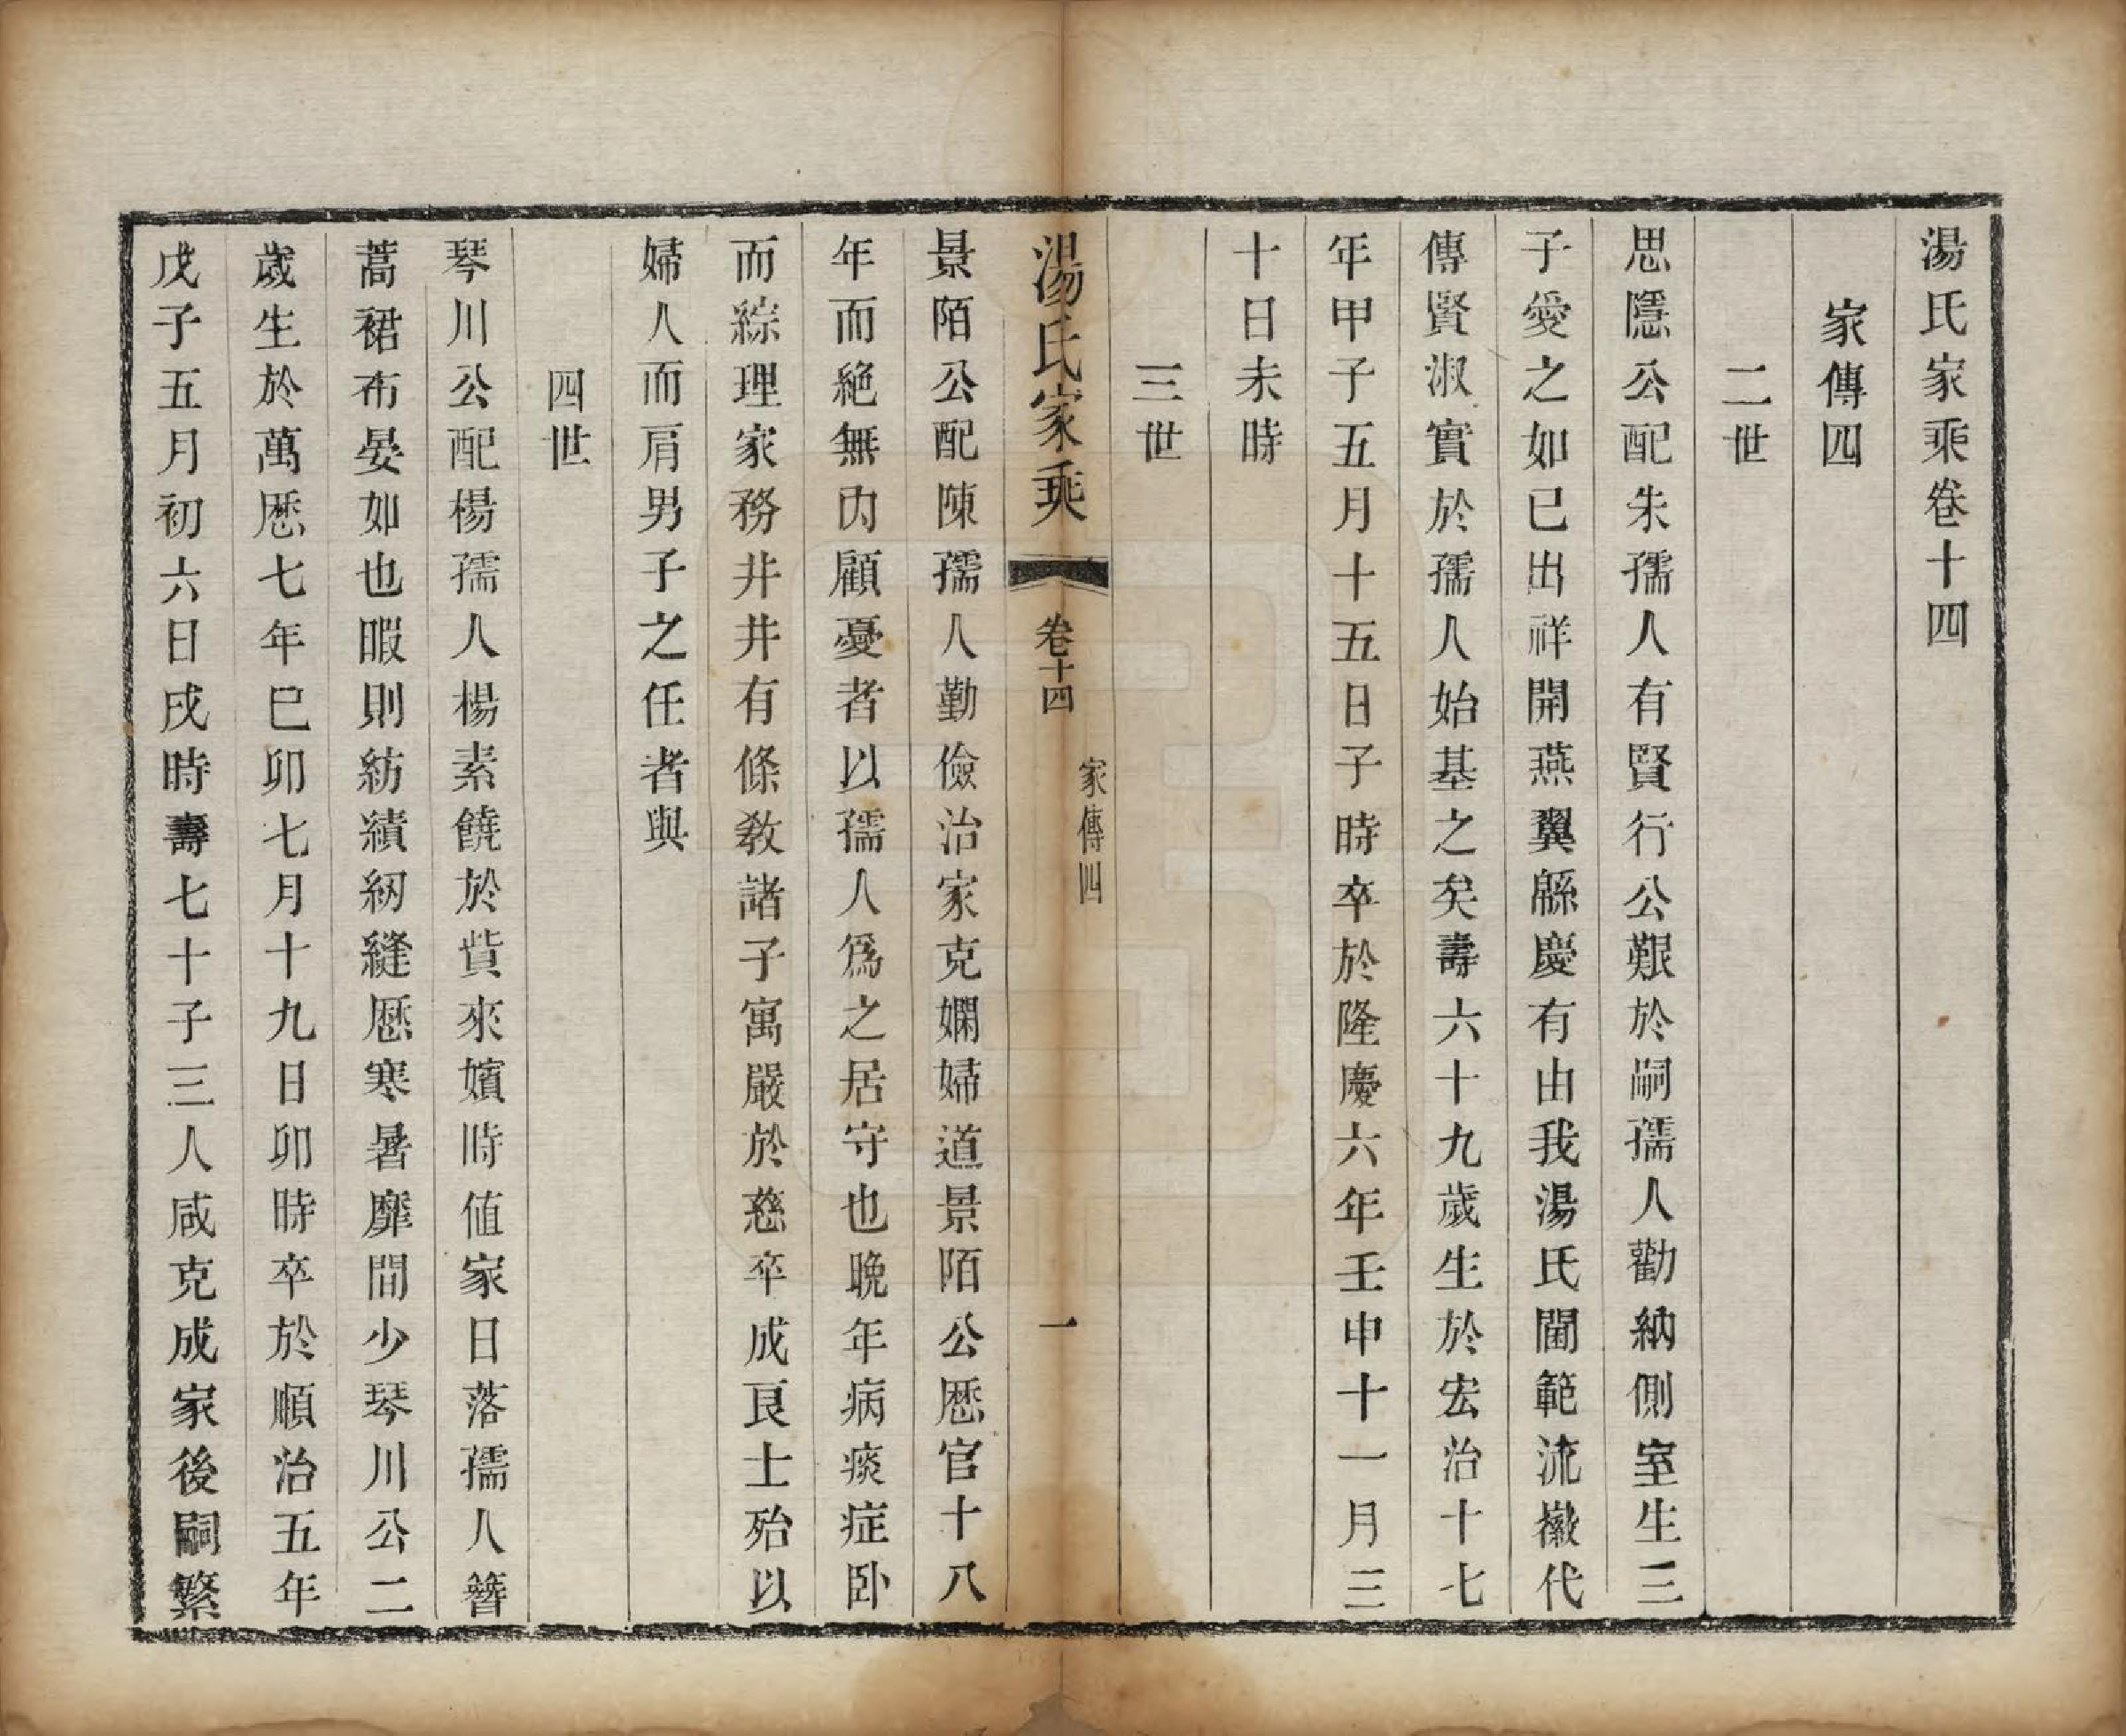 湯氏家乘卷十四
家傳四
二世
思隱公配朱孺人有賢行公艱於嗣孺人勸納側室生三
子愛之如已出祥開燕翼縣慶有由我湯氏閫範流徽代
傳賢淑實於孺人始基之矣壽六十九歲生於宏治十七
年甲子五月十五日子時卒於隆慶六年壬申十一月三
十日未時
三世
湯氏家乘
卷十四
家傳四
一
景陌公配陳孺人勤儉治家克嫻婦道景陌公厯官十八
年而絕無內顧憂者以孺人爲之居守也晚年病痰症卧
而綜理家務井井有條教諸子寓嚴於慈卒成良士殆以
婦人而肩男子之任者與
四世
琴川公配楊孺人楊素饒於貲來嬪時值家日落孺人簪
蒿裙布晏如也暇則紡績紉縫厯寒暑靡間少琴川公二
歲生於萬厯七年巳卯七月十九日卯時卒於順治五年
戊子五月初六日戌時壽七十子三人咸克成家後嗣繁